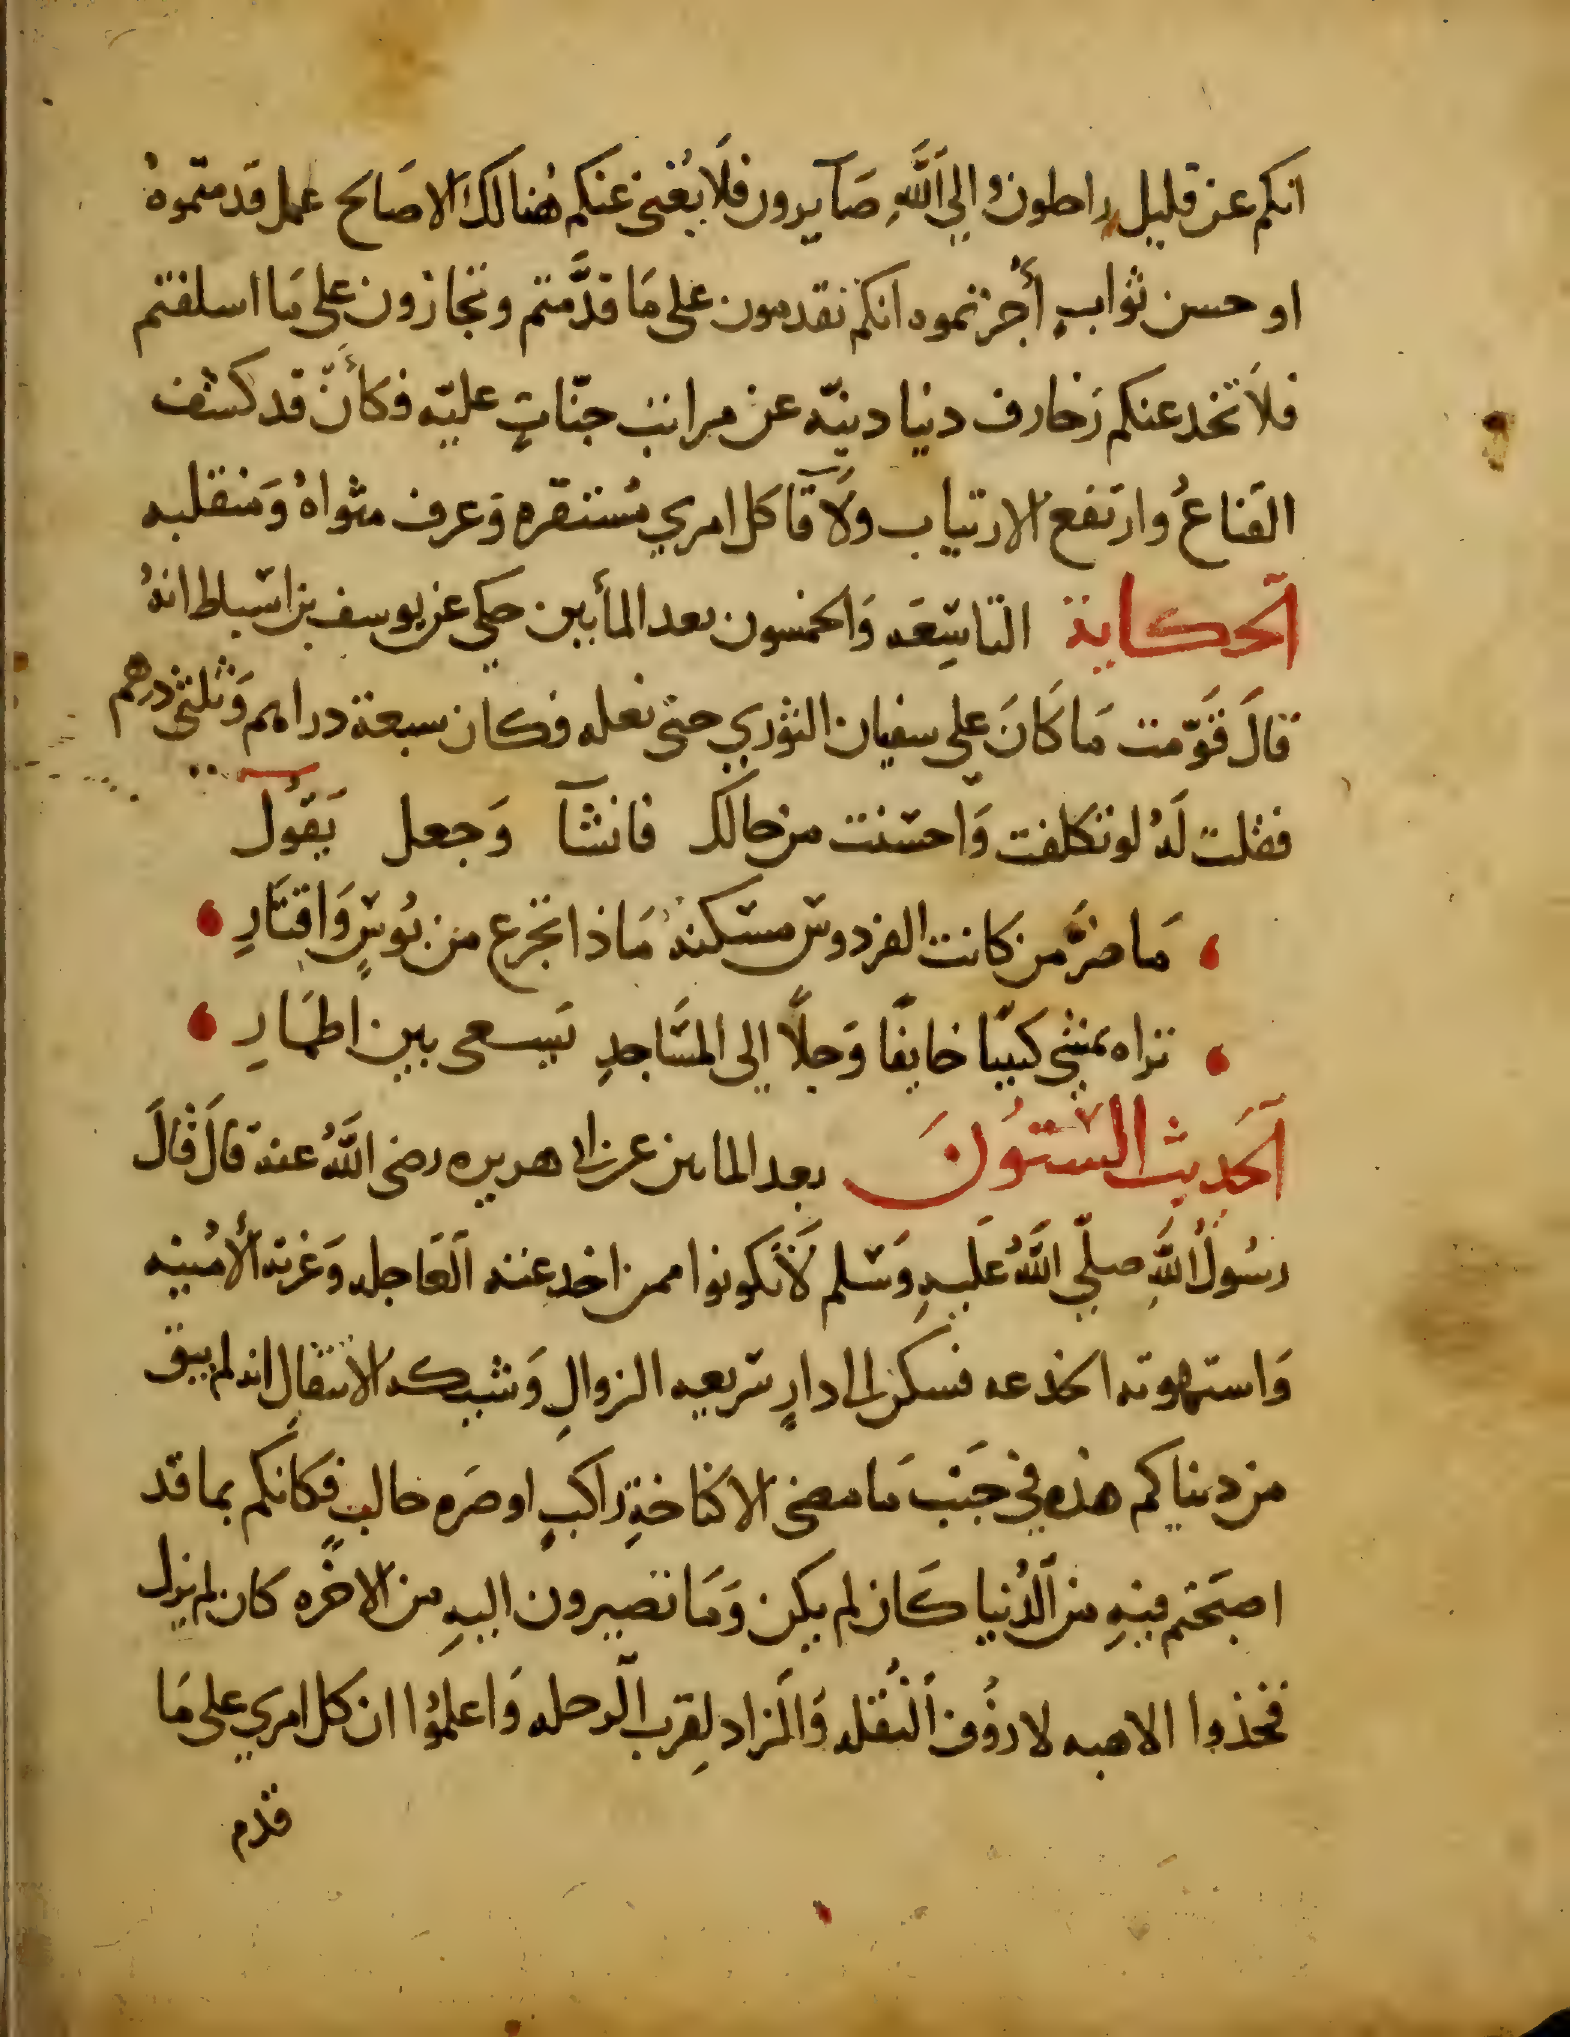 انكم عن قليل راحلون والي اللَّهِ صَآيرون فلَا يُغني عنكم هُنالك الا صَالح عمل قدمتموهُ
او حسن ثوابٍ أَحرزتموه انكم تقدمون على مَا قدَّمتم وتجازون على مَا اسلفتم
فلَا تخدعنكم زَخارف دنيا دنيّه عن مراتب جنّاتٍ عليّه فكأَنّ قد كشف
القناعُ وارتفع الارتياب ولَاقآ كل امري مُستقره وَعرف مثواهُ وَمنقلبه
الحكاية التاسِعَه وَالخمسون بعد المأيين حكي عن يوسف بن اسباط انهُ
قالَ قَوّمت مَا كَانَ علي سفيان الثوري حتى نعله فكان سبعة دراهم وَثلثي درهم
فقلت لَهُ لو تكلفت وَاحسَنت من حالك فانشآ وَجعل يَقُول
مَا ضرَّ من كَانت الفردوس مسكنهُ مَاذا تجرع من بُوسٍ وَاقتَارِ
تراه يمشي كئيبًا خايفًا وَجلًا إلى المسَاجدِ يَسعى بين اطمَارِ
اَلحَديث الستّونَ بعد الماىين عن ابي هريره رضى اللَّهُ عنه قالَ قَالَ
رسُولُ اللَّهِ صلّي اللَّهُ عَليهِ وَسَلم لَا تكونوا ممن اخدعنته العَاجله وَغرته الأُمنيه
وَاستهوته الخدعه فسكن الى دارٍ سَريعه الزوالِ وَشيكه الانتقالِ انه لم يبق
من دنياكم هذه في جَنب مَا مضى الا كَاناخةِ رَاكبٍ او صَره حالبٍ فكَانكم بما قد
اصبَحتم فيهِ من الدُنيا كَان لم يكن وَمَا تصيرون اليهِ من الاخره كان لم يزل
فخذوا الاهبه لازُوف النُقله وَالزاد لِقرب الرحله وَاعلمُوا ان كل امري على مَا
قدم